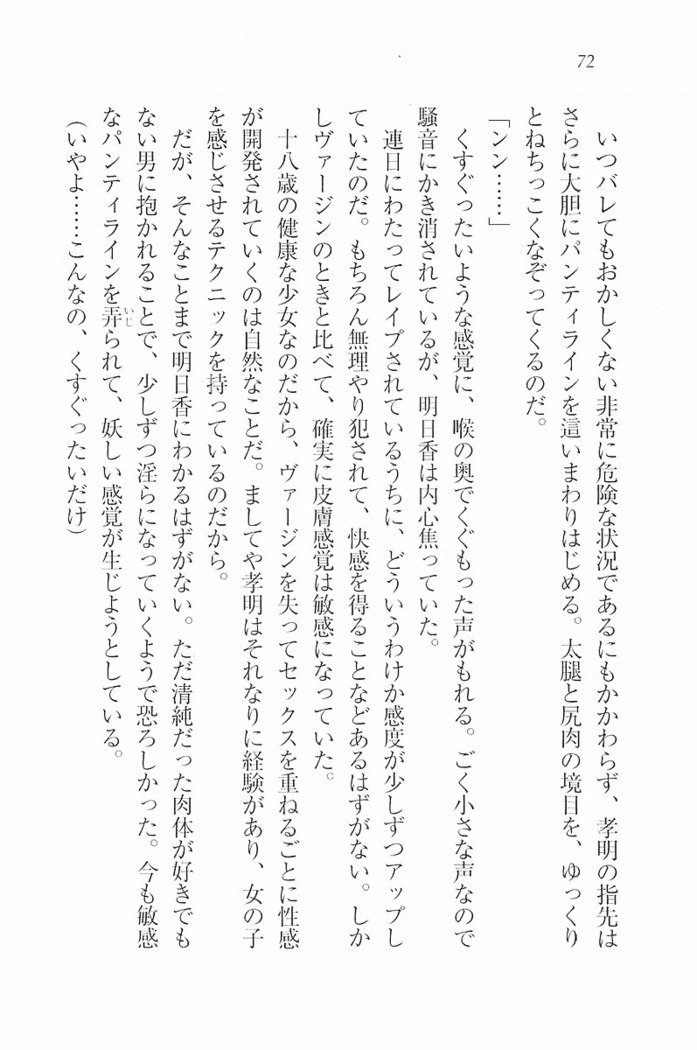 72
いつバレてもおかしくない非常に危険な状況であるにもかかわらず、孝明の指先は
さらに大胆にパンティラインを這いまわりはじめる。太腿と尻肉の境目を、ゆっくり
とねちっこくなぞってくるのだ。
「ンン……」
くすぐったいような感覚に、喉の奥でくぐもった声がもれる。ごく小さな声なので
騒音にかき消されているが、明日香は内心焦っていた。
連日にわたってレイプされているうちに、どういうわけか感度が少しずつアップし
ていたのだ。もちろん無理やり犯されて、快感を得ることなどあるはずがない。しか
しヴァージンのときと比べて、確実に皮膚感覚は敏感になっていた。
十八歳の健康な少女なのだから、ヴァージンを失ってセックスを重ねるごとに性感
が開発されていくのは自然なことだ。ましてや孝明はそれなりに経験があり、女の子
を感じさせるテクニックを持っているのだから。
だが、そんなことまで明日香にわかるはずがない。ただ清純だった肉体が好きでも
ない男に抱かれることで、少しずつ淫らになっていくようで恐ろしかった。今も敏感
なパンティラインを弄られて、妖しい感覚が生じようとしている。
いじ
（いやよ……こんなの、くすぐったいだけ）